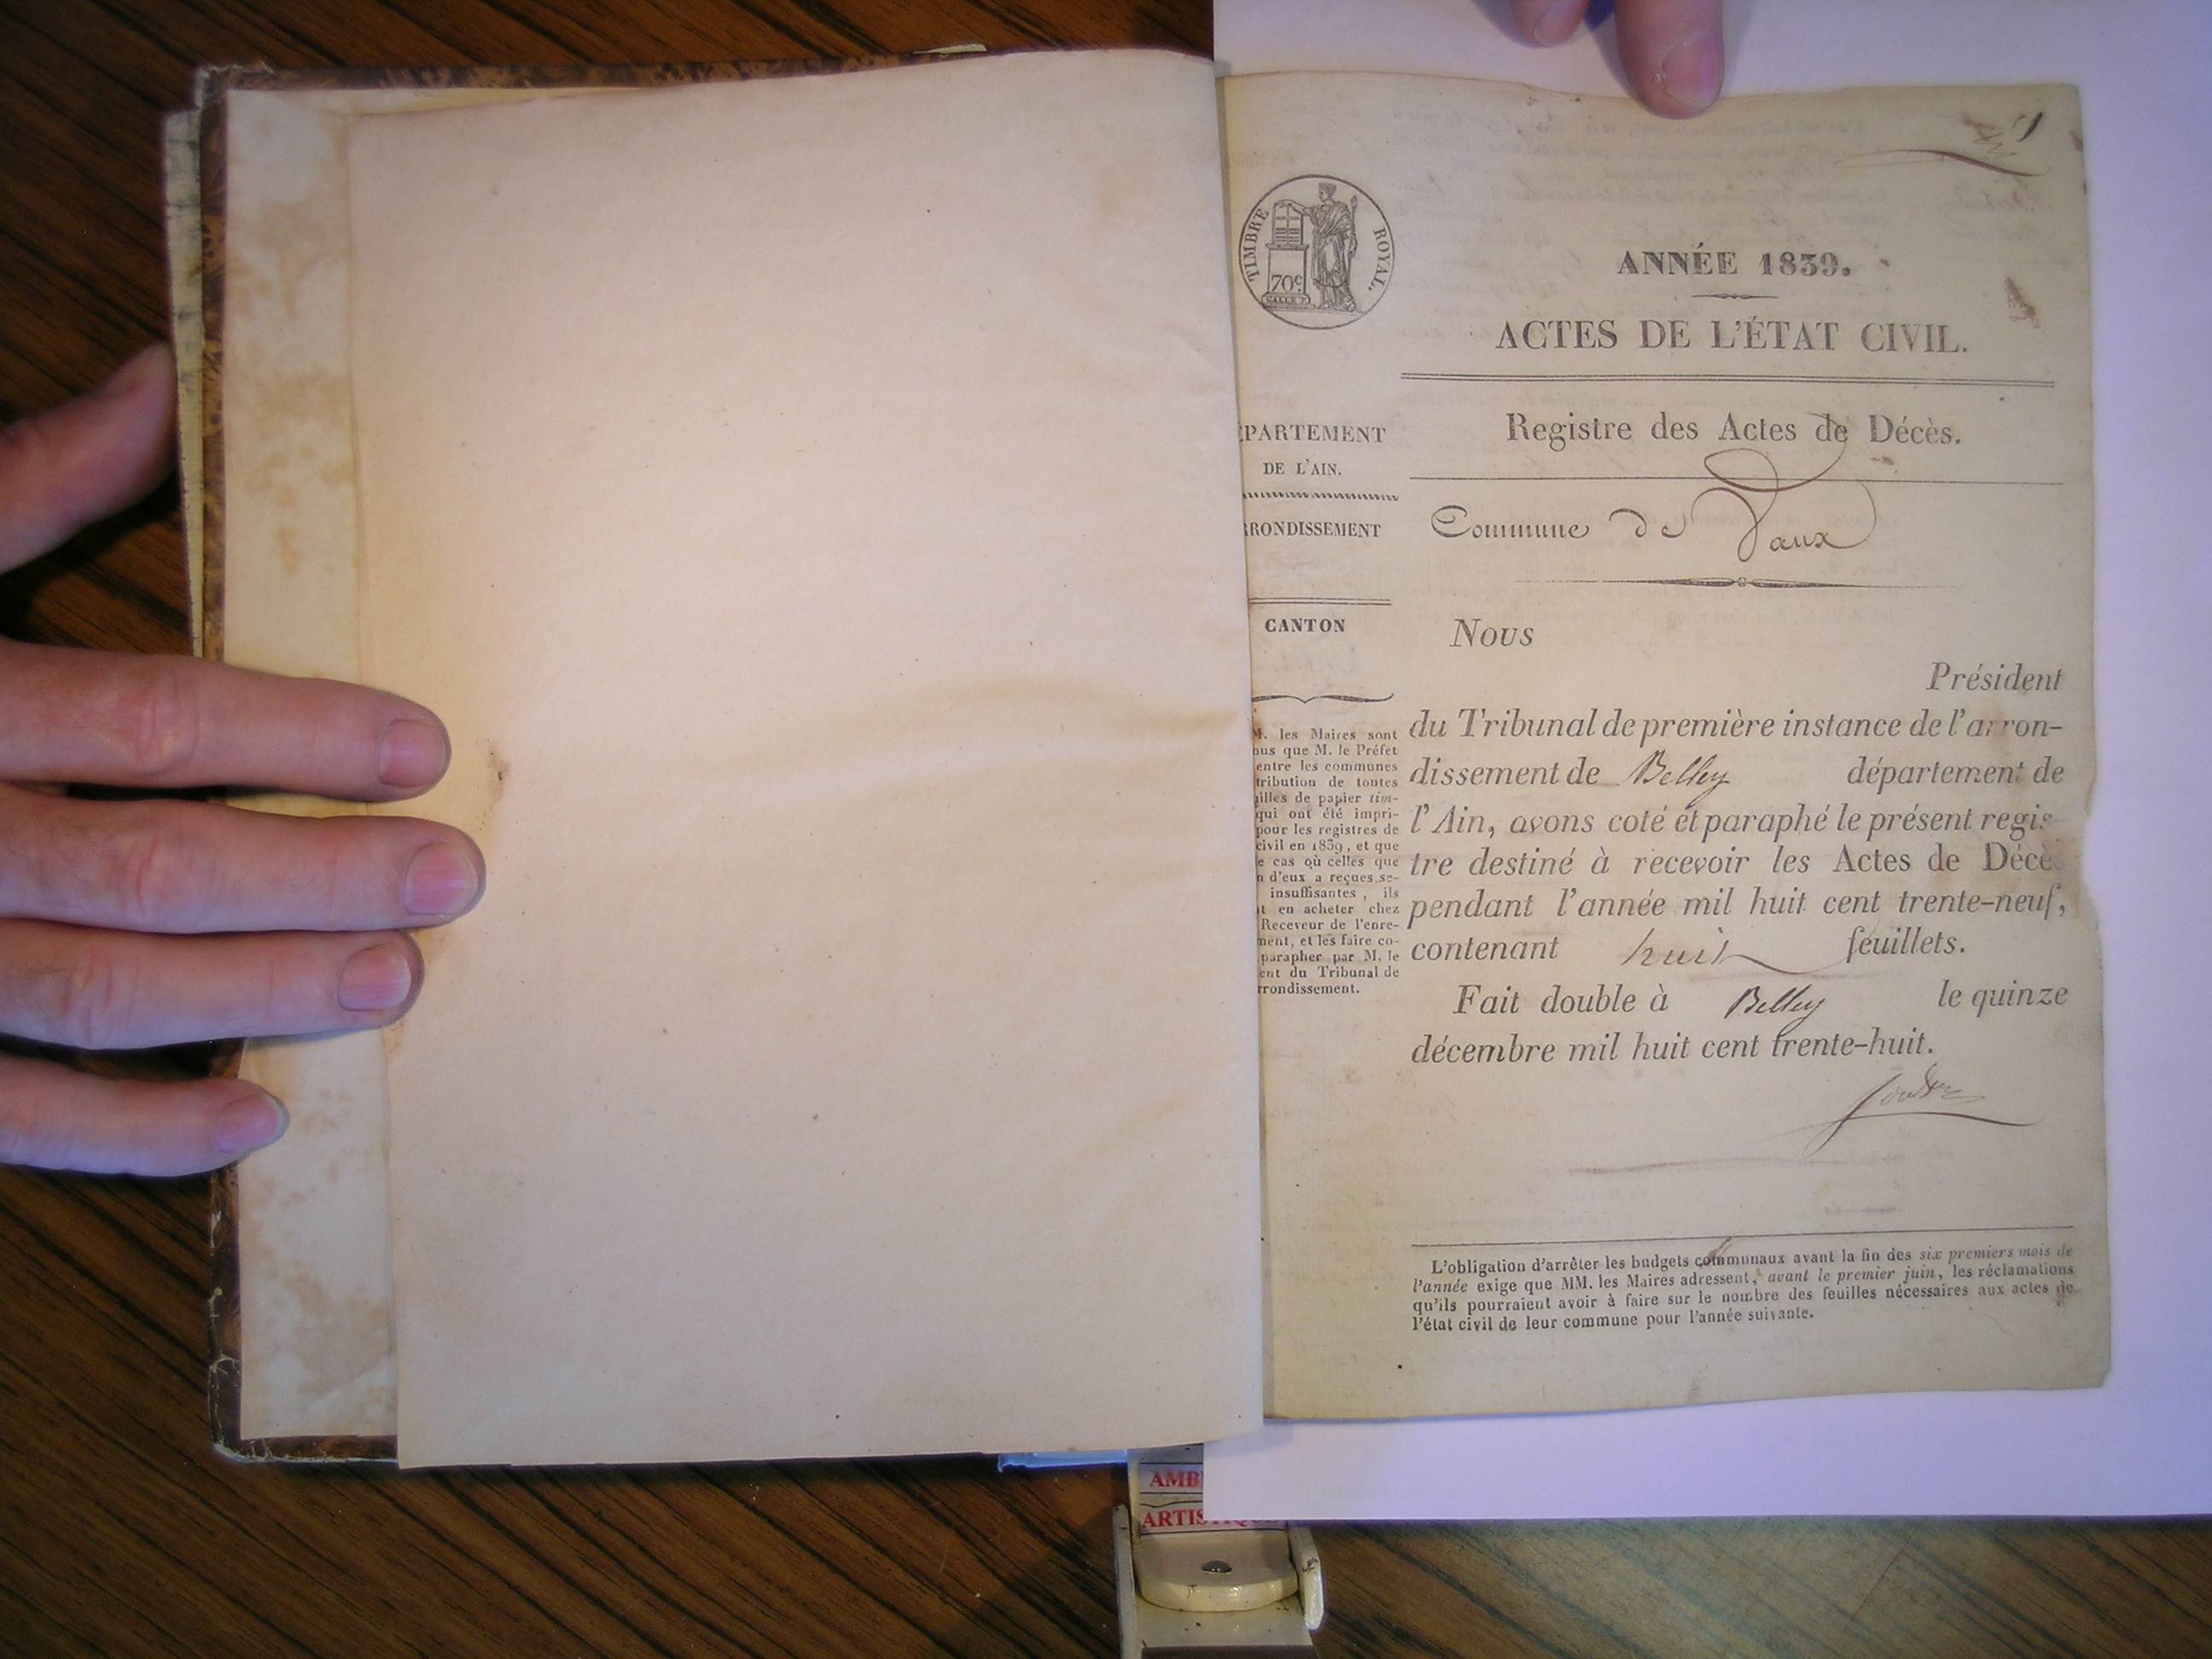 1
TIMBRE ROYAL.
70c
ANNÉE 1839.
ACTES DE L'ÉTAT CIVIL.
PARTEMENT
DE L'AIN.
RRONDISSEMENT
CANTON
M. les Maires sont
nus que M. le Préfet
entre les communes
tribution de toutes
illes de papier tim-
qui ont été impri-
pour les registres de
civil en 1839, et que
e cas où celles que
n d'eux a reçues se-
insuffisantes, ils
t en acheter chez
Receveur de l'enre-
ment, et les faire co-
parapher par M. le
ent du Tribunal de
rrondissement.
Registre des Actes de Décès.
Commune de Vaux
Nous
Président
du Tribunal de première instance de l'arron-
dissement de Belley département de
l'Ain, avons coté et paraphé le présent regis-
tre destiné à recevoir les Actes de Décès
pendant l'année mil huit cent trente-neuf,
contenant huit feuillets.
Fait double à Belley le quinze
décembre mil huit cent trente-huit.
L'obligation d'arrêter les budgets communaux avant la fin des six premiers mois de
l'année exige que MM. les Maires adressent, avant le premier juin, les réclamations
qu'ils pourraient avoir à faire sur le nombre des feuilles nécessaires aux actes de
l'état civil de leur commune pour l'année suivante.
AMB
ARTISTIQUE